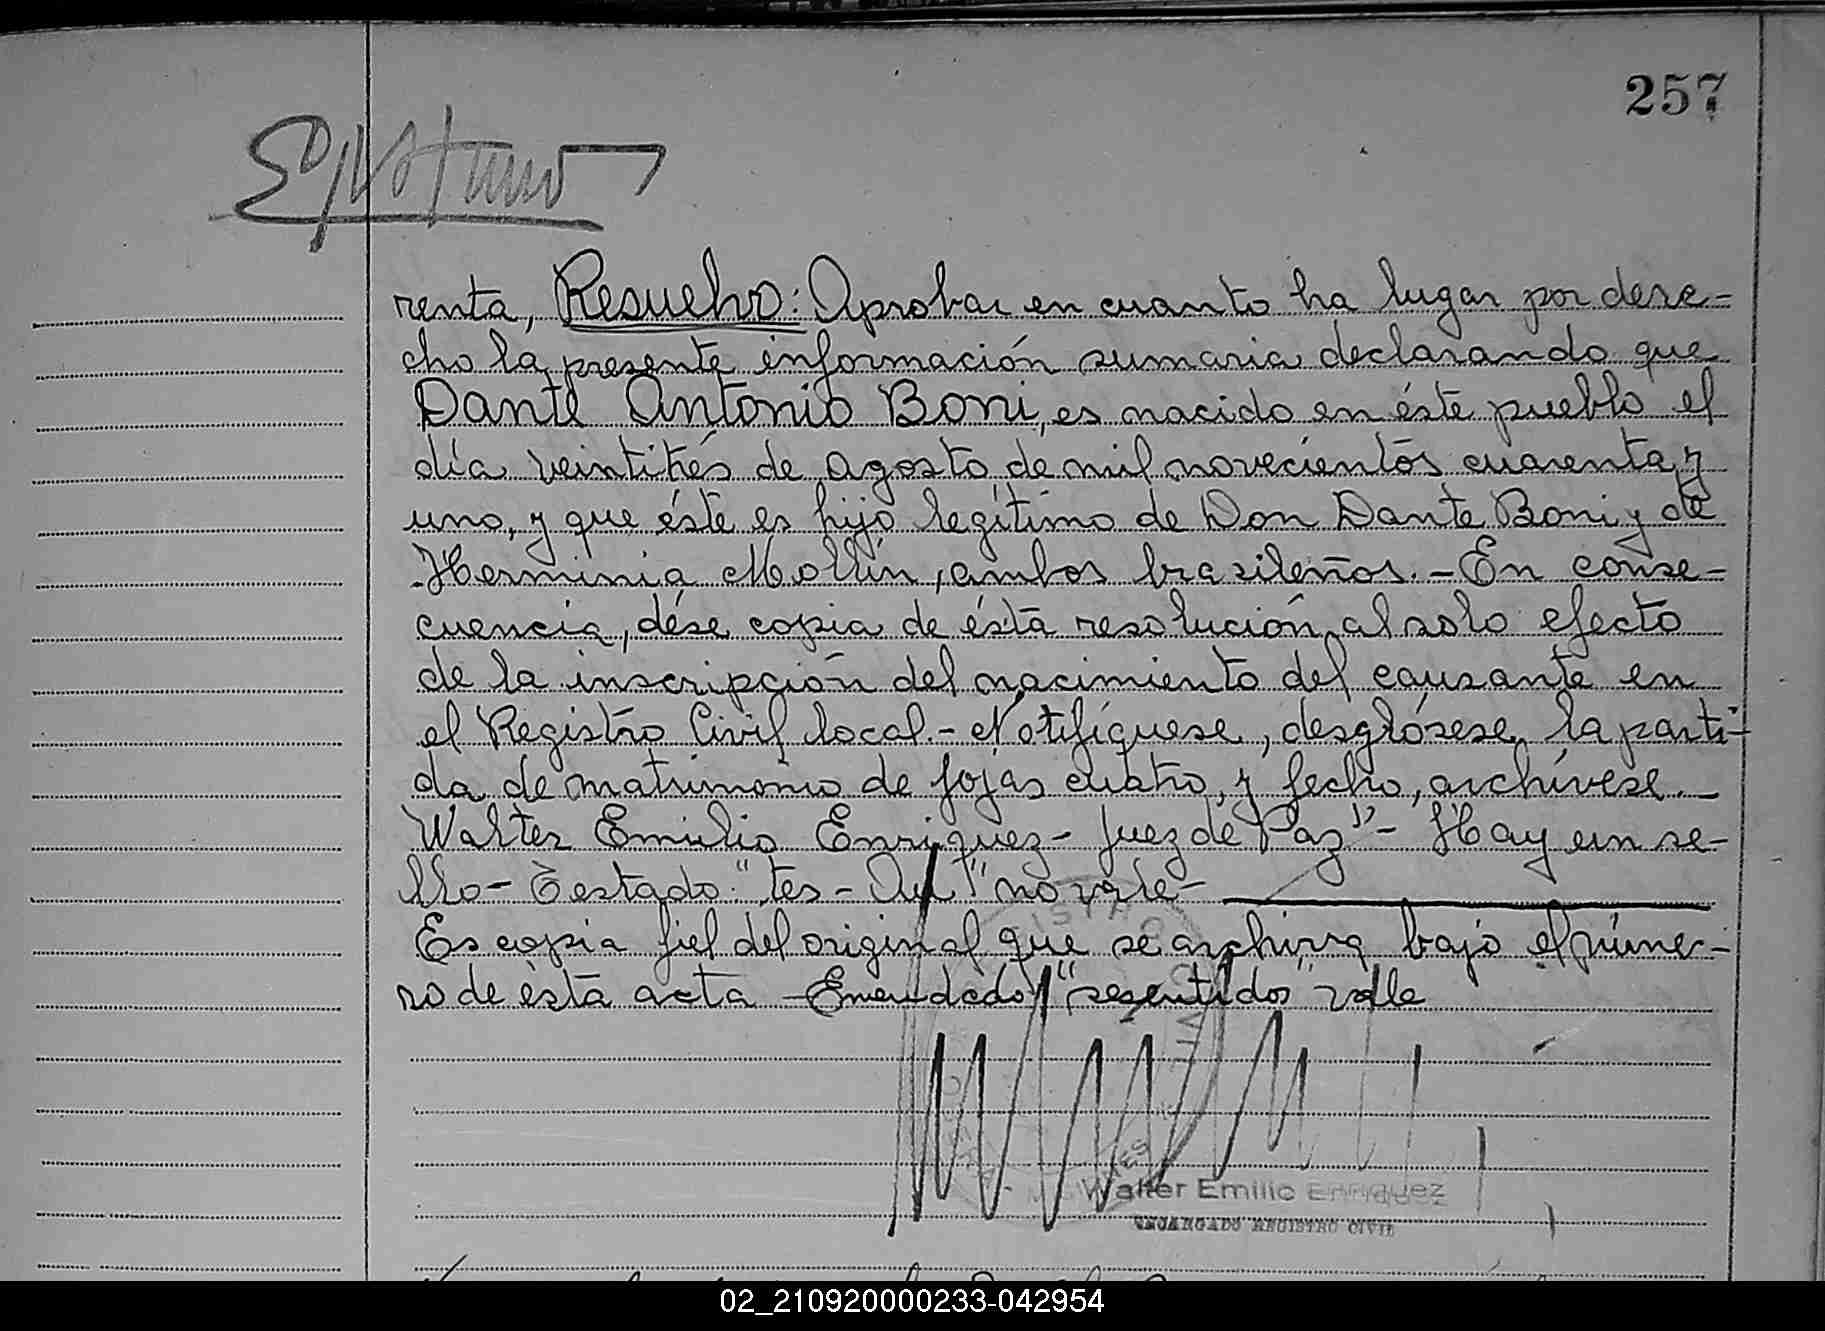 257
renta, Resuelvo: Aprobar en cuanto ha lugar por dere-
cho la presente información sumaria declarando que
Dante Antonio Boni, es nacido en éste pueblo el
día veintitrés de agosto de mil novecientos cuarenta y
uno, y que éste es hijo legítimo de Don Dante Boni y de
Herminia Mollin, ambos brasileños.- En conse-
cuencia, dése copia de ésta resolución al solo efecto
de la inscripción del nacimiento del causante en
el Registro Civil local.- Notifíquese, desglósese la parti-
da de matrimonio de fojas cuatro, y fecho, archívese.-
Walter Emilio Enriquez- Juez de Paz"- Hay un se-
llo- Testado: "tes- no vale-
Es copia fiel del original que se archiva bajo el núme-
ro de ésta acta - Enmendado "sesentidos" vale
Walter Emilio Enriquez
ENCARGADO REGISTRO CIVIL
02_210920000233-042954